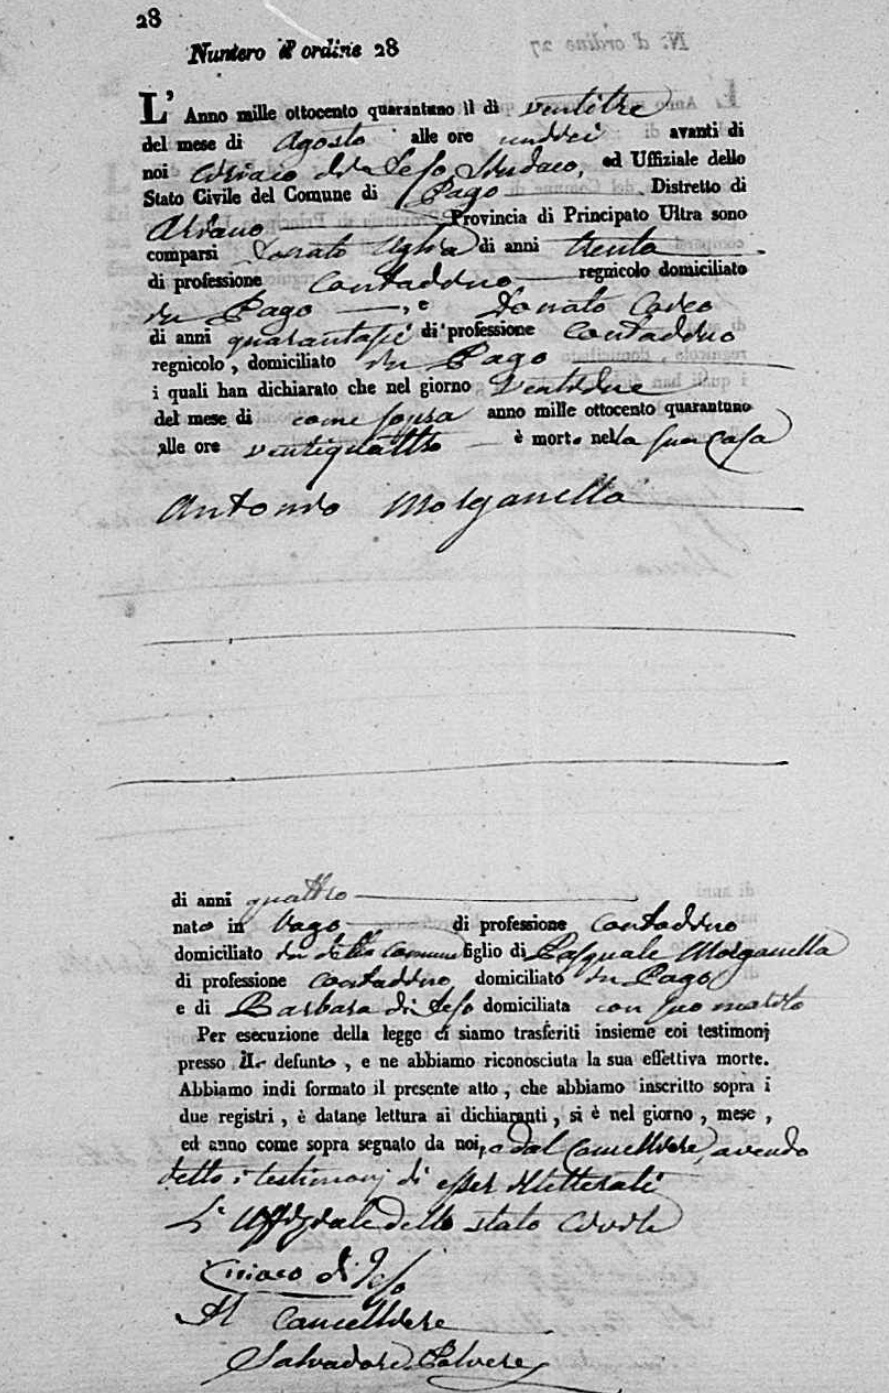 28
Numero d'ordine 28
L' Anno mille ottocento quarantuno il dì ventitre
del mese di Agosto alle ore undici avanti di
noi Ciriaco di Leso Sindaco, ed Uffiziale dello
Stato Civile del Comune di Pago Distretto di
Ariano Provincia di Principato Ultra sono
comparsi Donato di anni trenta
di professione Contadino regnicolo domiciliato
in Pago , e Donato
di anni quarantasei di professione Contadino
regnicolo , domiciliato in Pago
i quali han dichiarato che nel giorno Ventidue
del mese di come sopra anno mille ottocento quarantuno
alle ore ventiquattro è morto nella sua casa
Antonio Morganella
di anni quattro
nato in Pago di professione contadino
domiciliato in detto Comune figlio di Pasquale Morganella
di professione contadino domiciliato in Pago
e di Barbara di Leso domiciliata con suo marito
Per esecuzione della legge ci siamo trasferiti insieme coi testimonj
presso il defunto , e ne abbiamo riconosciuta la sua effettiva morte.
Abbiamo indi formato il presente atto , che abbiamo inscritto sopra i
due registri , è datane lettura ai dichiaranti , si è nel giorno , mese ,
ed anno come sopra segnato da noi, e dal Cancelliere, avendo
detto i testimonj di esser illetterati
L'Uffiziale dello stato Civile
Ciriaco di Leso
Il Cancelliere
Salvadore Polvere